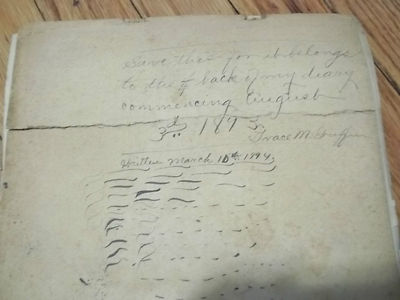 Save this for it belongs
to the back of my diary
commencing August
3rd 1893
Grace M. Griffin
Written March 10th 1894